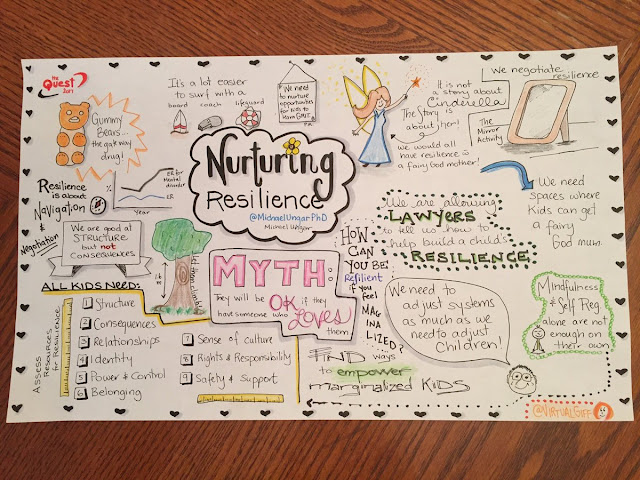 the
Quest
2017
Gummy
Bears...
the gateway
drug!
It's a lot easier
to surf with a
board coach lifeguard
We need
to nurture
opportunities
for kids to
learn GRIT
It is not
a story about
Cinderella
The Story is
about her!
we would all
have resilience c̄
a fairy God mother!
We negotiate resilience
The
Mirror
Activity
Nurturing
Resilience
@MichaelUngarPhD
Michael Ungar
Resilience
is about
Navigation
&
Negotiation
%
ER for
Mental
disorder
ER
Year
We are good at
STRUCTURE
but not
CONSEQUENCES
MYTH:
They will be OK if they
have someone who Loves
them
HOW
CAN
YOU BE
Resilient
if you
feel
MAG
INA
LIZED?
FIND ways
to empower
marginalized KIDS
We are allowing
LAWYERS
to tell us how to
help build a child's
RESILIENCE
We need
spaces where
Kids can get
a fairy
God mum.
We need to
adjust systems
as much as we
need to adjust
Children!
Mindfulness
& Self Reg.
alone are not
enough on
their own
ALL KIDS NEED:
Assess
Resources
for Resilience
1 Structure
2 Consequences
3 Relationships
4 Identity
5 Power & Control
6 Belonging
7 Sense of culture
8 Rights & Responsibility
9 Safety & Support
@VirtualGiff